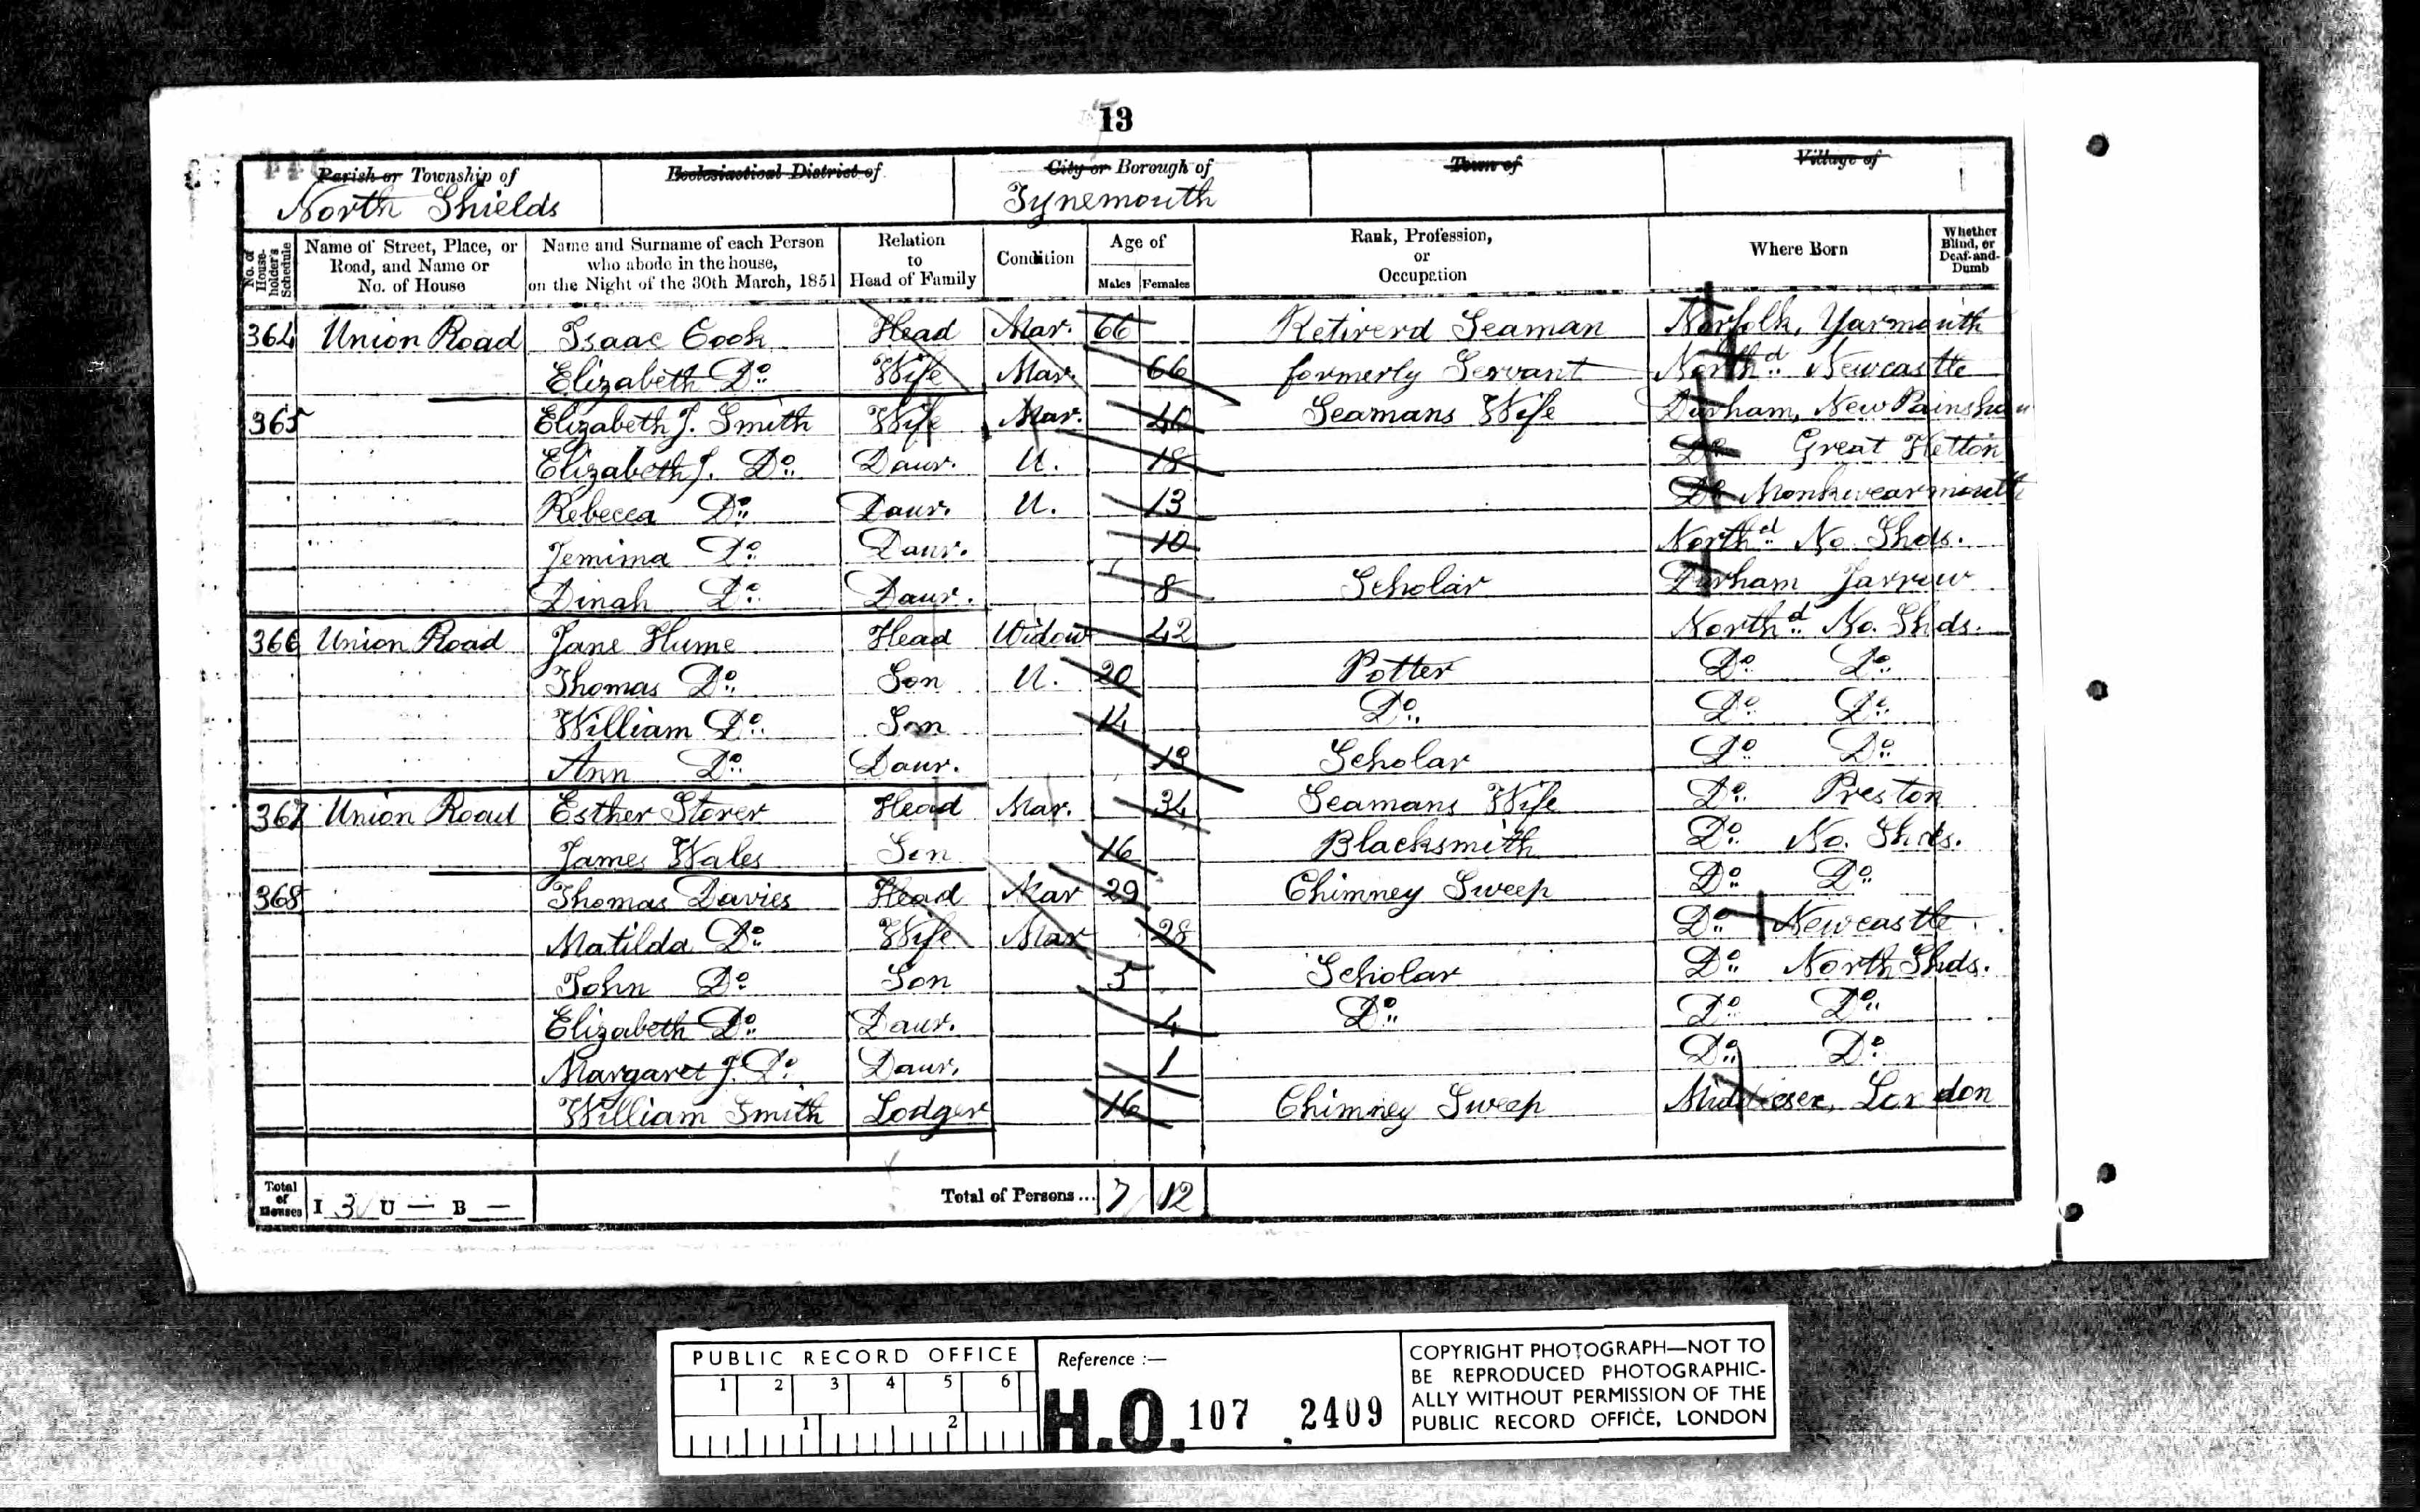 13
Parish or Township of Ecclesiastical District of City or Borough of Town of Village of
North Shields Tynemouth
No. of House-holder's Schedule Name of Street, Place, or Road, and Name or No. of House Name and Surname of each Person who abode in the house, on the Night of the 30th March, 1851 Relation to Head of Family Condition Age of Males Females Rank, Profession, or Occupation Where Born Whether Blind, or Deaf-and-Dumb
364 Union Road Isaac Cook Head Mar. 66 Retirerd Seaman Norfolk, Yarmouth
Elizabeth Do. Wife Mar. 66 formerly Servant Northd. Newcastle
365 Elizabeth J. Smith Wife Mar. 40 Seamans Wife Durham, New Painshaw
Elizabeth J. Do. Daur. U. 18 Do Great Hetton
Rebecca Do. Daur. U. 13 Do Monkwearmouth
Jemima Do. Daur. 10 Northd. No. Shds.
Dinah Do. Daur. 8 Scholar Durham Jarrow
366 Union Road Jane Hume Head Widow 42 Northd. No. Shds.
Thomas Do. Son U. 20 Potter Do. Do.
William Do. Son 14 Do. Do. Do.
Ann Do. Daur. Scholar Do. Do.
367 Union Road Esther Storer Head Mar. 34 Seamans Wife Do. Preston
James Wales Son 16 Blacksmith Do. No. Shds.
368 Thomas Davies Head Mar 29 Chimney Sweep Do. Do.
Matilda Do. Wife Mar 28 Do. Newcastle
John Do. Son 5 Scholar Do. North Shds.
Elizabeth Do. Daur. 4 Do. Do. Do.
Margaret J. Do. Daur. 1 Do. Do.
William Smith Lodger 16 Chimney Sweep Middlesex, London
Total of Houses I 3 U — B — Total of Persons... 7 12
PUBLIC RECORD OFFICE Reference :—
1 2 3 4 5 6
1 2
H.O. 107 2409
COPYRIGHT PHOTOGRAPH—NOT TO
BE REPRODUCED PHOTOGRAPHIC-
ALLY WITHOUT PERMISSION OF THE
PUBLIC RECORD OFFICE, LONDON